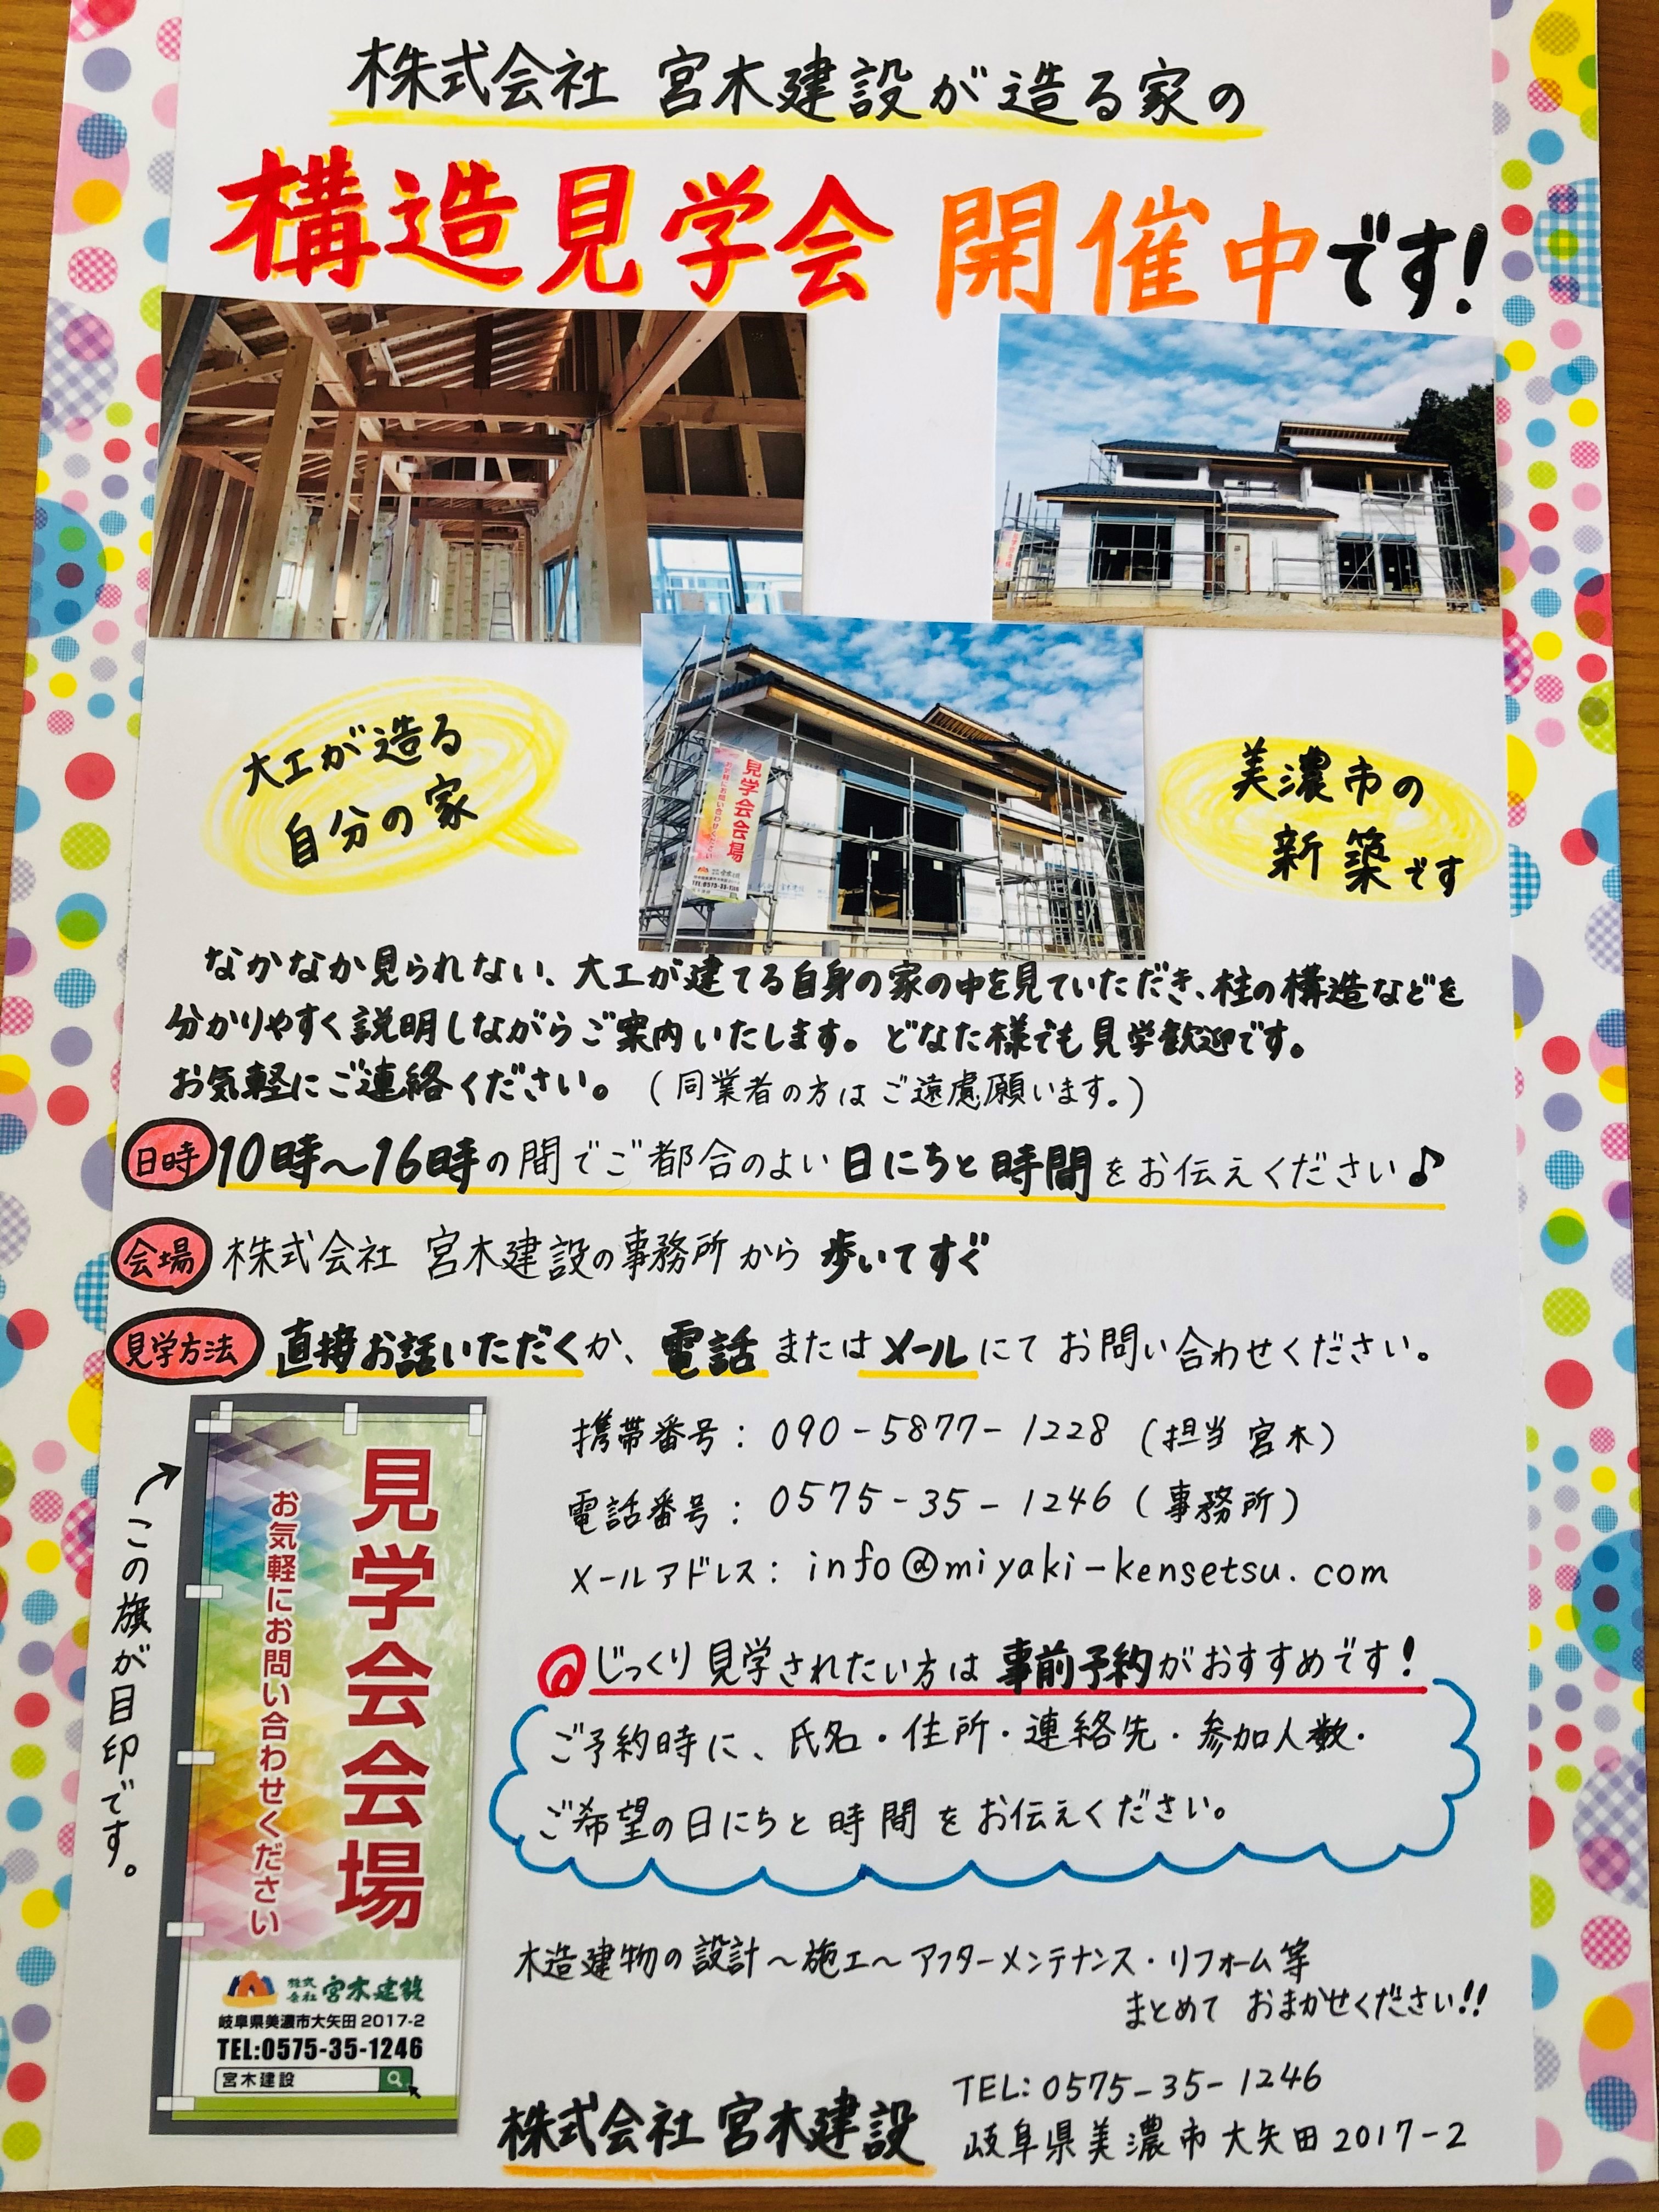 株式会社 宮木建設が造る家の
構造見学会 開催中です!
大工が造る
自分の家
見学会会場
お気軽にお問い合わせください
TEL:0575-35-1246
美濃市の
新築です
なかなか見られない、大工が建てる自身の家の中を見ていただき、柱の構造などを
分かりやすく説明しながらご案内いたします。どなた様でも見学歓迎です。
お気軽にご連絡ください。(同業者の方はご遠慮願います。)
日時 10時〜16時の間でご都合のよい日にちと時間をお伝えください♪
会場 株式会社 宮木建設の事務所から歩いてすぐ
見学方法 直接お話いただくか、電話またはメールにてお問い合わせください。
携帯番号:090-5877-1228(担当 宮木)
電話番号:0575-35-1246(事務所)
メールアドレス:info@miyaki-kensetsu.com
この旗が目印です。
見学会会場
お気軽にお問い合わせください
株式会社 宮木建設
岐阜県美濃市大矢田2017-2
TEL:0575-35-1246
宮木建設
じっくり見学されたい方は事前予約がおすすめです!
ご予約時に、氏名・住所・連絡先・参加人数・
ご希望の日にちと時間をお伝えください。
木造建物の設計〜施工〜アフターメンテナンス・リフォーム等
まとめて おまかせください!!
株式会社 宮木建設
TEL:0575-35-1246
岐阜県美濃市大矢田2017-2